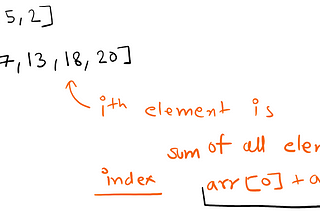 5, 2]
7, 13, 18, 20]
ith element is
sum of all elem
index
arr [0] + a